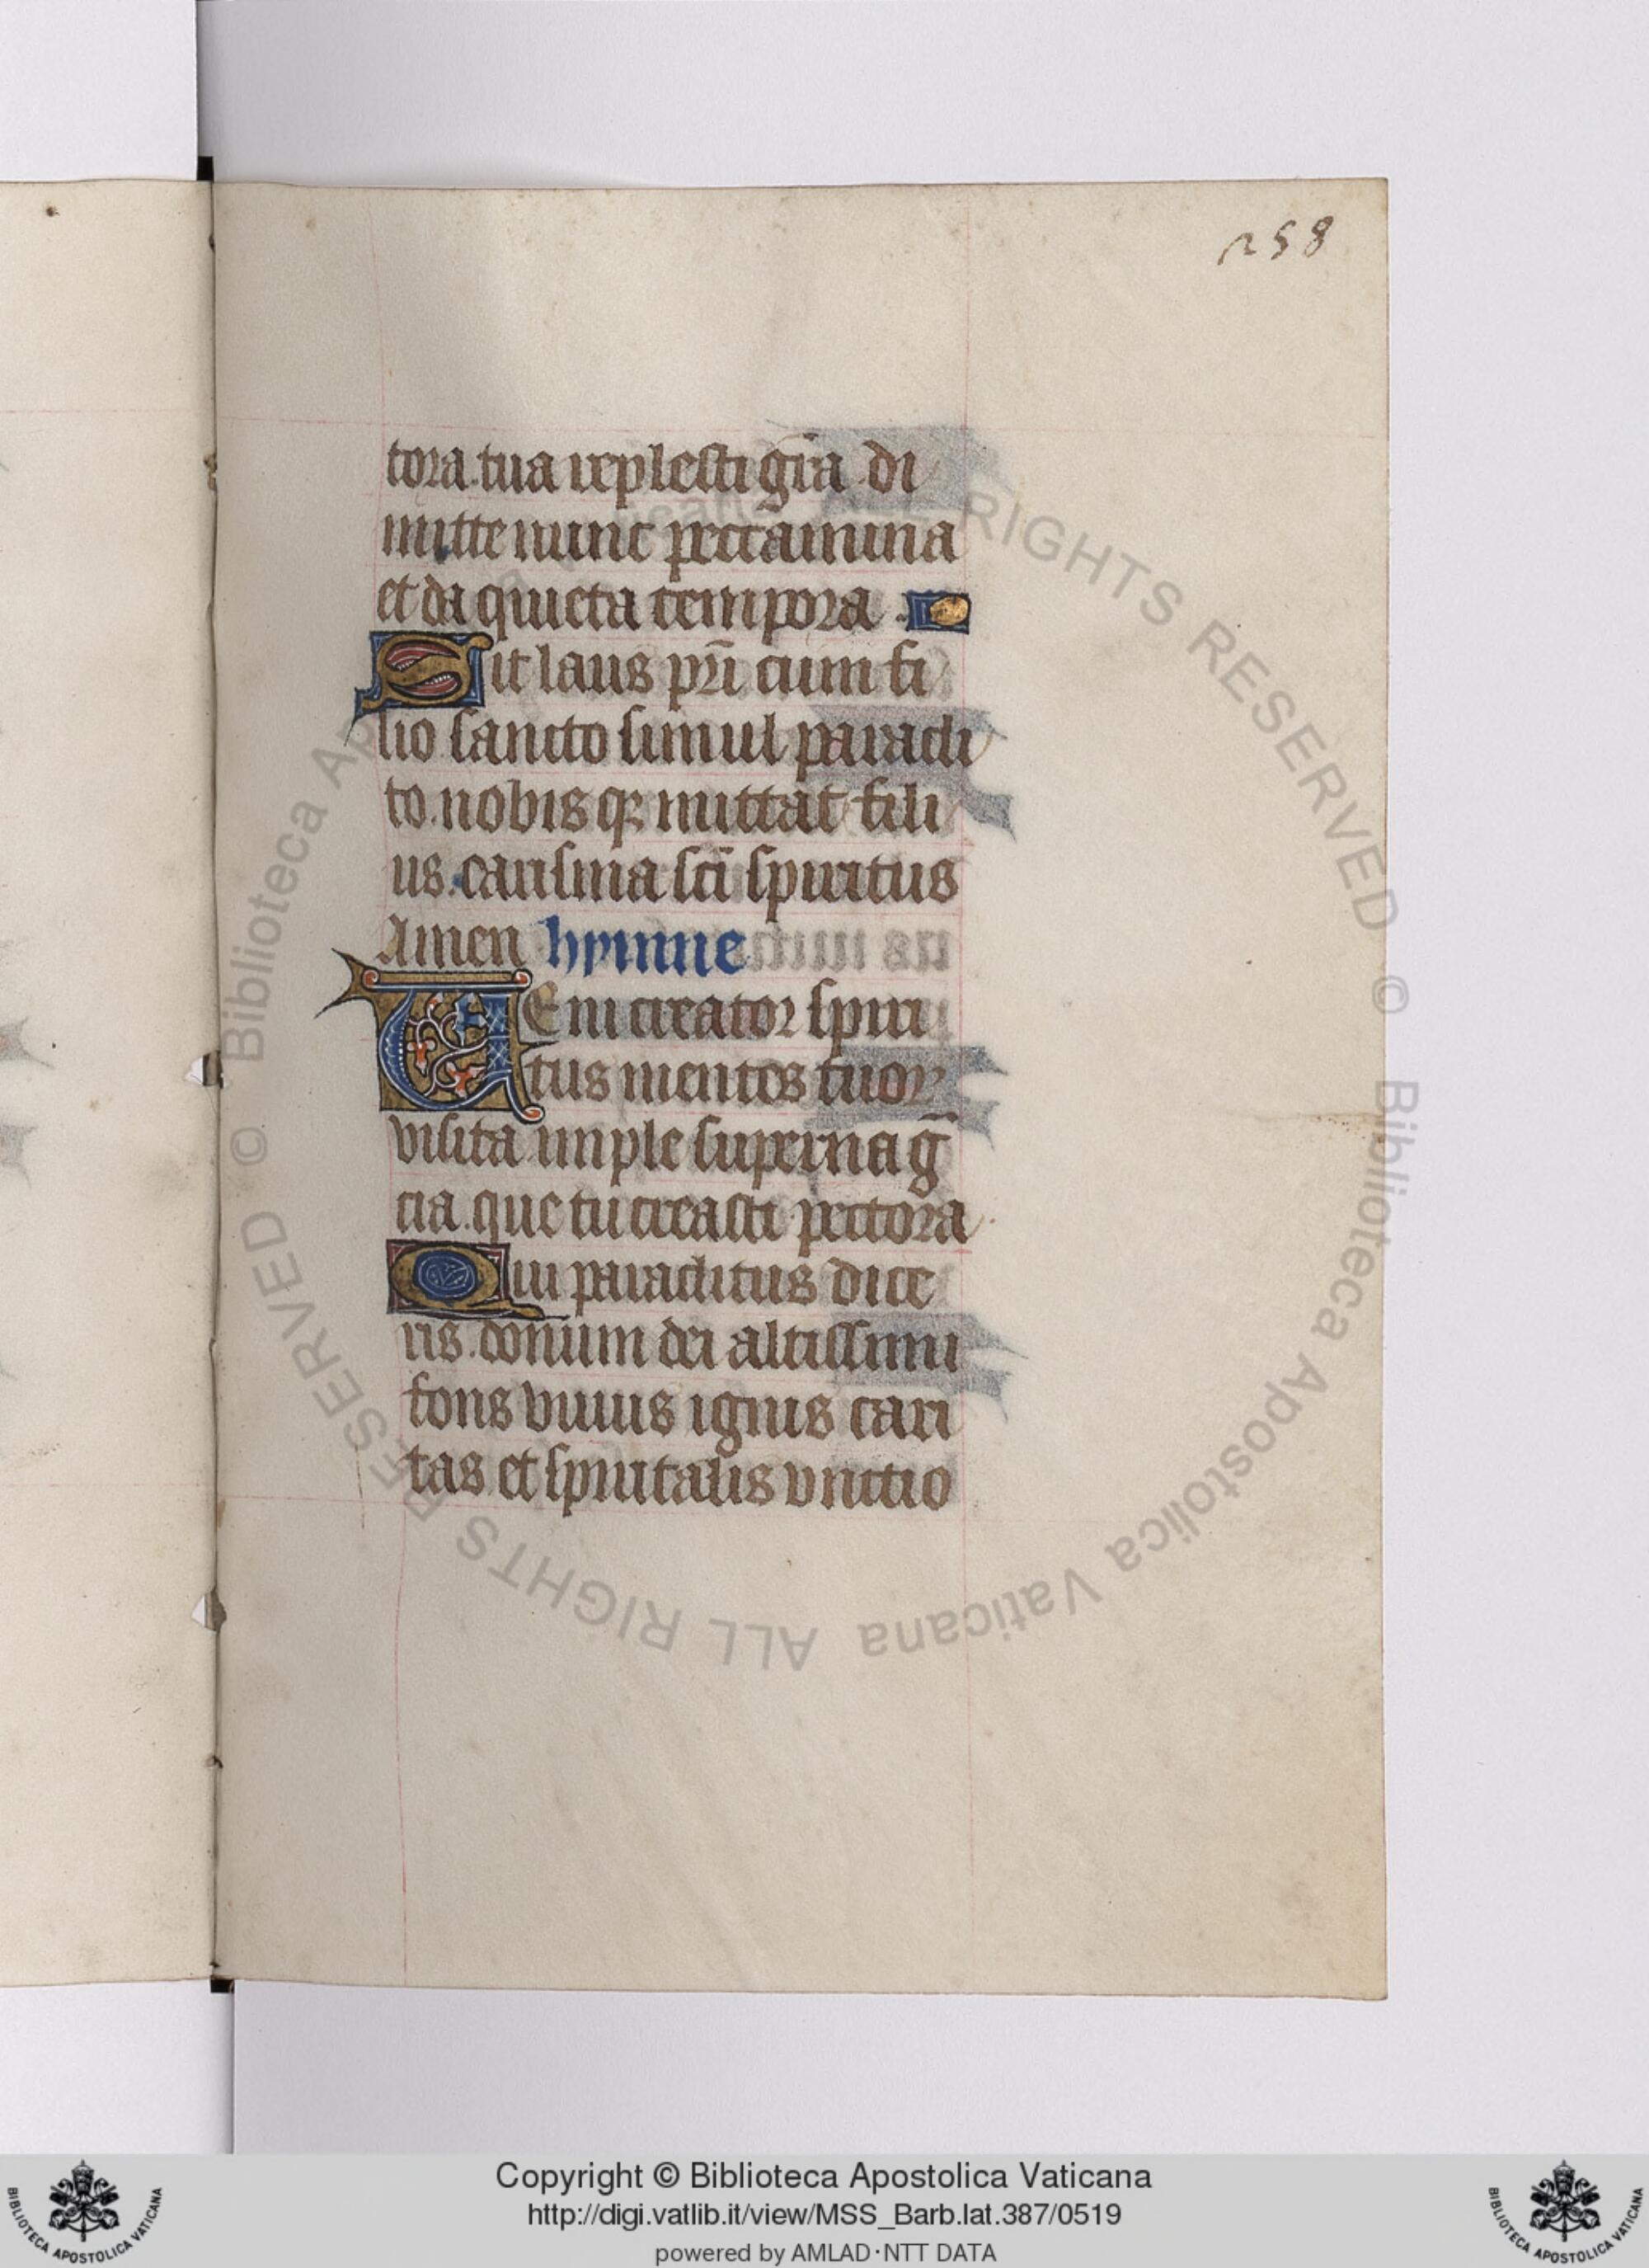 258
tora. tua replesti gr̄a di
mitte nunc peccamina
et da quieta tempora.
Sit laus pr̄i cum fi
lio sancto simul paracli
to. nobisqꝫ mittat fili
us. carisma sc̄i spiritus
Amen hymne
VEni creator spiri
tus mentes tuoꝝ
visita imple superna ḡ
cia. que tu creasti pectora
Qui paraclitus dice
ris. donum dei altissimi
fons viuus ignis cari
tas et spiritalis vnctio
© Biblioteca Apostolica Vaticana ALL RIGHTS RESERVED © Biblioteca Apostolica Vaticana ALL RIGHTS RESERVED
Copyright © Biblioteca Apostolica Vaticana
http://digi.vatlib.it/view/MSS_Barb.lat.387/0519
powered by AMLAD·NTT DATA
BIBLIOTECA APOSTOLICA VATICANA
BIBLIOTECA APOSTOLICA VATICANA